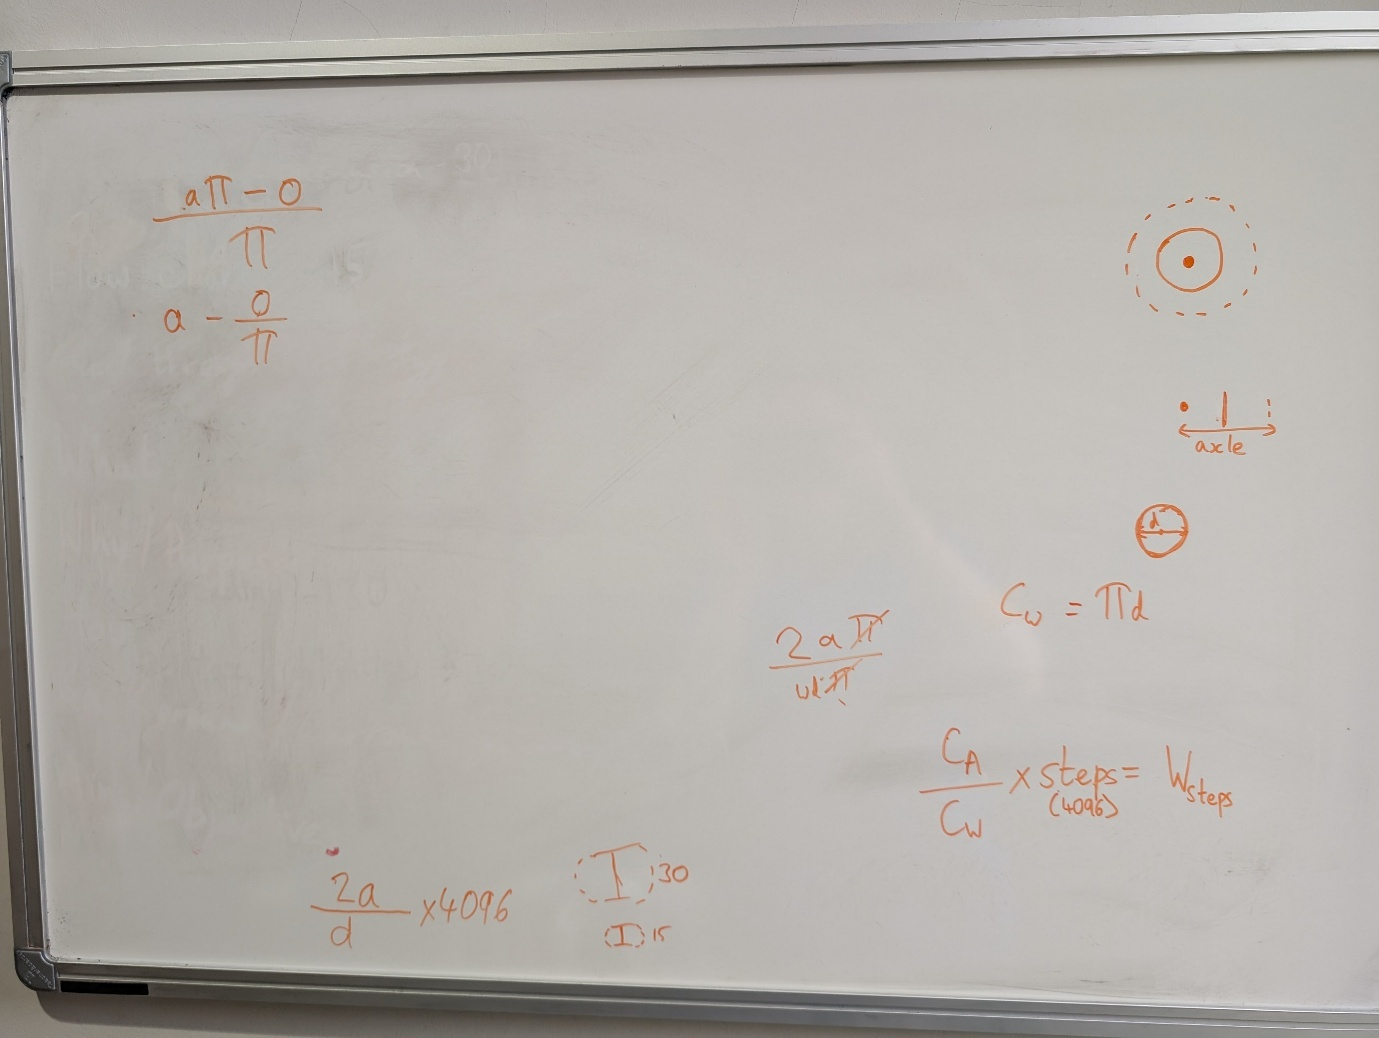 aπ - 0
π
a - 0
π
axle
d
C_w = πd
2aπ
wdπ
C_A
C_W
× steps = W_steps
(4096)
2a
d
×4096
30
15